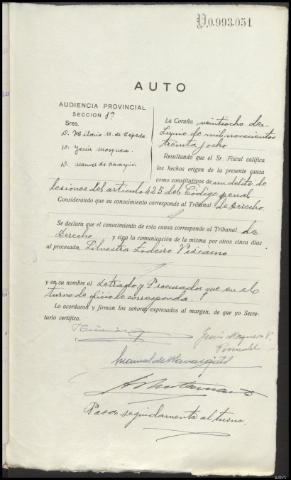 P.0.993.051
AUTO
AUDIENCIA PROVINCIAL
SECCIÓN 1ª
Sres.
D. Hilario N. de Cepeda
D. Jesús Marquina
D. Manuel de
La Coruña veintiocho de
Junio de mil novecientos
treinta y ocho
Resultando que el Sr. Fiscal califica
los hechos origen de la presente causa
como constitutivos de un delito de
lesiones del artículo 425 del Código penal
Considerando que su conocimiento corresponde al Tribunal de Derecho
Se declara que el conocimiento de esta causa corresponde al Tribunal de
Derecho y siga la comunicación de la misma por otros cinco días
al procesado, Silvestre Lodeiro
y en su nombre al Letrado y Procurador que en el
turno de oficio le corresponda.
Lo acordaron y firman los señores expresados al margen, de que yo Secre-
tario certifico.
Jesús Marquina
Manuel de
Pasos seguidamente al turno.